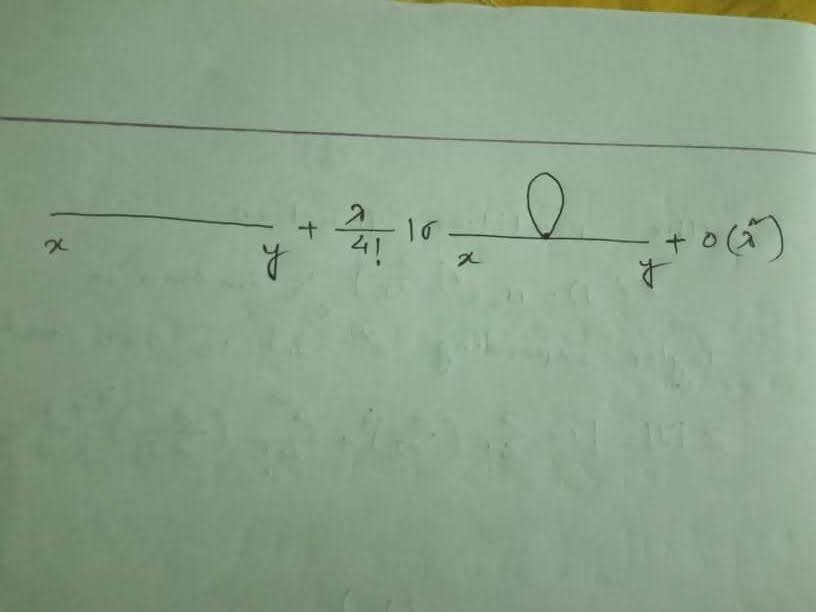 x y + λ/4! x y + o(λ²)